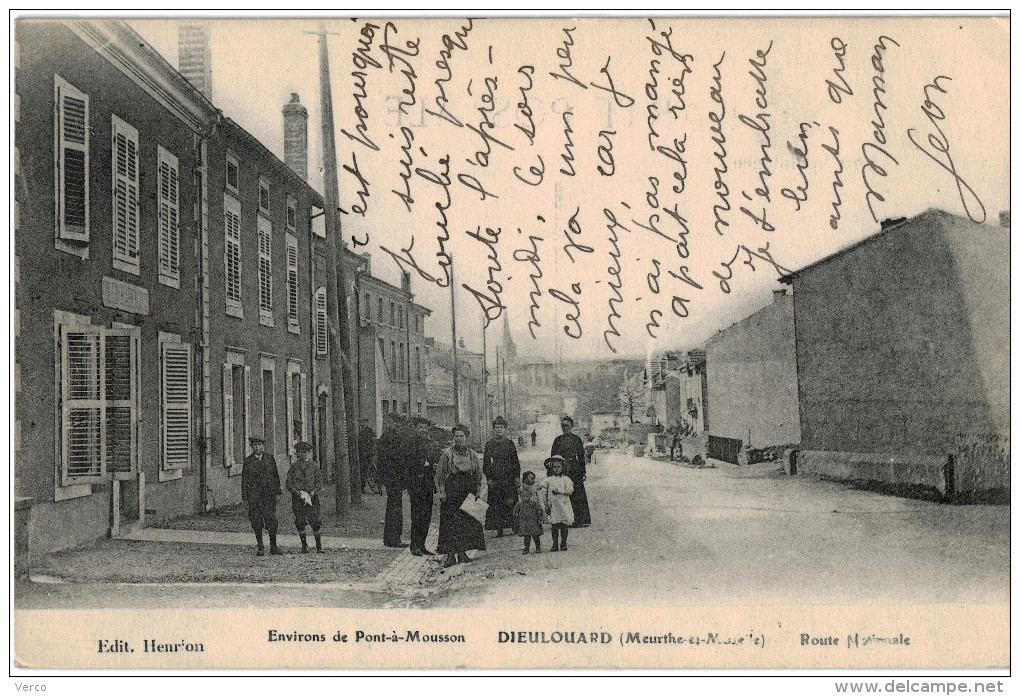 c'est pourquoi
je suis resté
couché presque
toute l'après-
midi. Ce soir
cela va un peu
mieux, car je
n'ai pas mangé
à part cela rien
de nouveau
et t'embrasse
bien,
ainsi que
Maman
Léon
Edit. Henrion
Environs de Pont-à-Mousson
DIEULOUARD (Meurthe-et-Moselle)
Route Nationale
Verco
www.delcampe.net